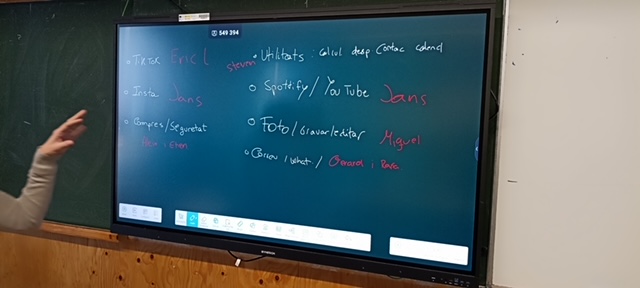 549 394
• TikTok Eric L
• Insta Jans
• Compres/Seguretat
• Utilitats : calcul desp Contac calend
steven
• Spotify/YouTube Jans
• Foto/Gravar/editar
Miguel
• Correu, what. / General :